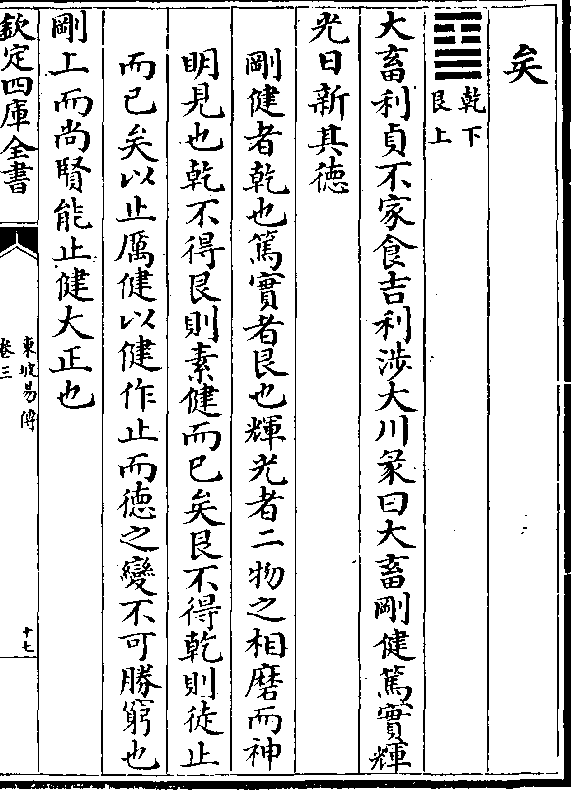 矣
乾下
艮上
大畜利貞不家食吉利涉大川彖曰大畜剛健篤實輝
光日新其徳
剛健者乾也篤實者艮也輝光者二物之相磨而神
明見也乾不得艮則素健而已矣艮不得乾則徒止
而已矣以止厲健以健作止而徳之變不可勝窮也
剛上而尚賢能止健大正也
欽定四庫全書
東坡易傳
卷三
十七